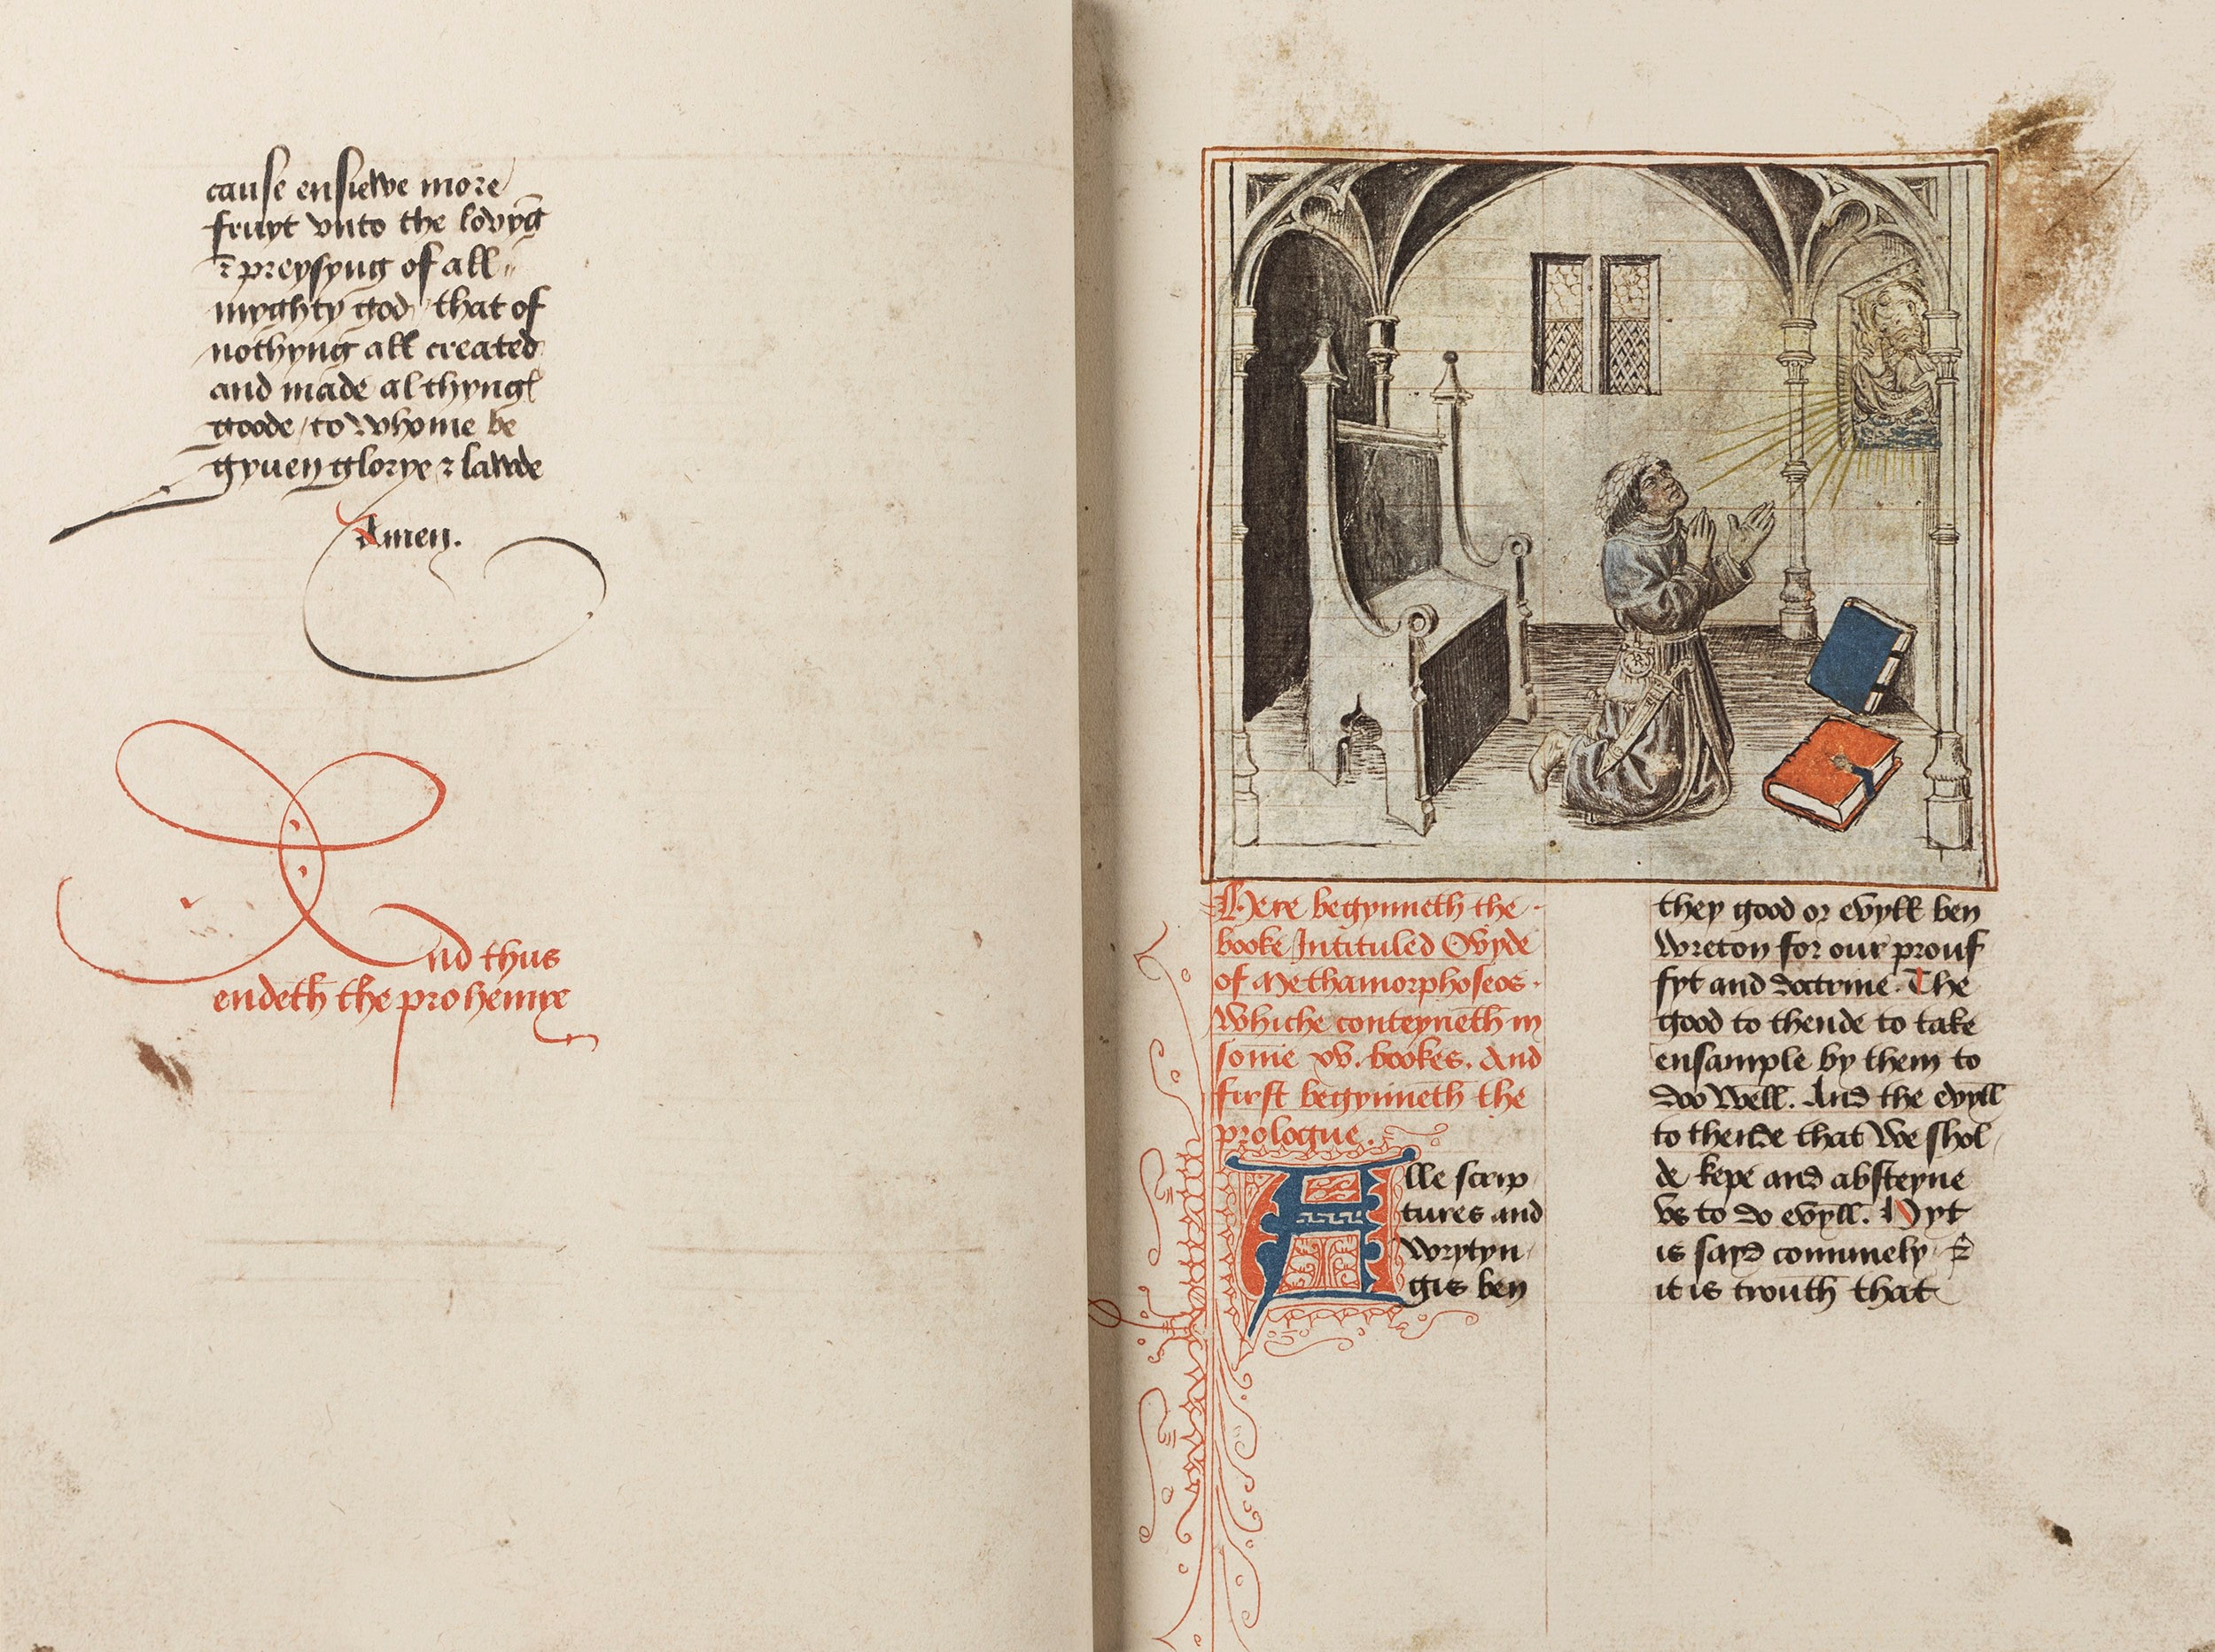 cause ensiewe more
fruyt vnto the lovyng
⁊ preysyng of all
myghty god / that of
nothyng all created
and made al thyngs
goode / to whome be
gyuen glorye ⁊ lawde
Amen.
And thus
endeth the prohemye
Here begynneth the
booke Intituled Ovyde
of Methamorphoseos.
Whiche conteyneth in
some xv. bookes. And
first begynneth the
prologue.
Alle scrip
tures and
wrytyn
gis ben
they good or evyll ben
wreton for our prouf
fyt and doctrine. The
good to thende to take
ensample by them to
doo well. And the evyll
to thende that we shol
de kepe and absteyne
vs to do evyll. Hyt
is sayd comunely ⁊
it is trouth that